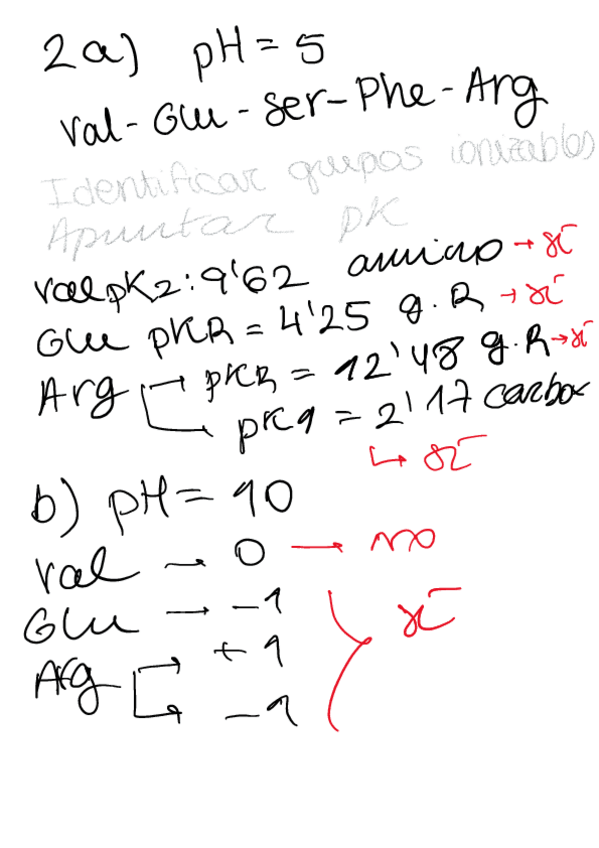 2a) pH = 5
Val - Glu - Ser - Phe - Arg
Identificar grupos ionizables
Apuntar pK
Val pK2: 9'62 amino → sí
Glu pKR = 4'25 g. R → sí
Arg → pKR = 12'48 g. R → sí
pK1 = 2'17 carbox
↳ sí
b) pH = 10
Val → 0 → no
Glu → -1
Arg → +1 sí
→ -1